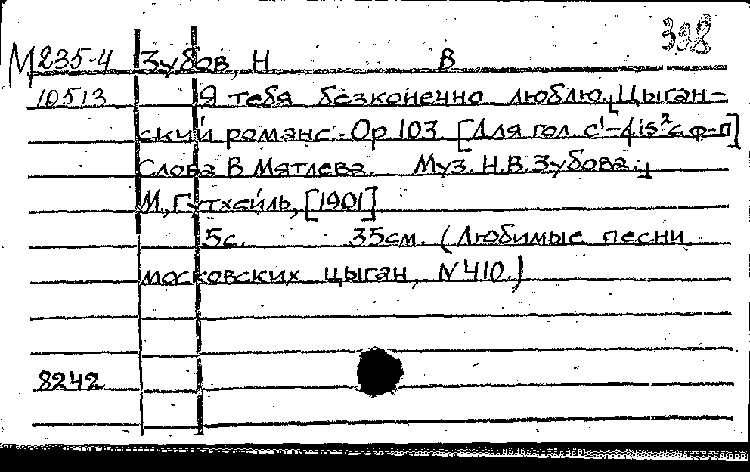 398
М 235-4 Зубов, Н В
10513 Я тебя безконечно люблю, Цыган-
ский романс. Op 103. [Для гол. c¹-fis² с ф-п]
Слова В Мятлева. Муз. Н.В. Зубова.
М, Гутхейль, [1901]
5с. 35см. (Любимые песни
московских цыган, N 410.)
8242